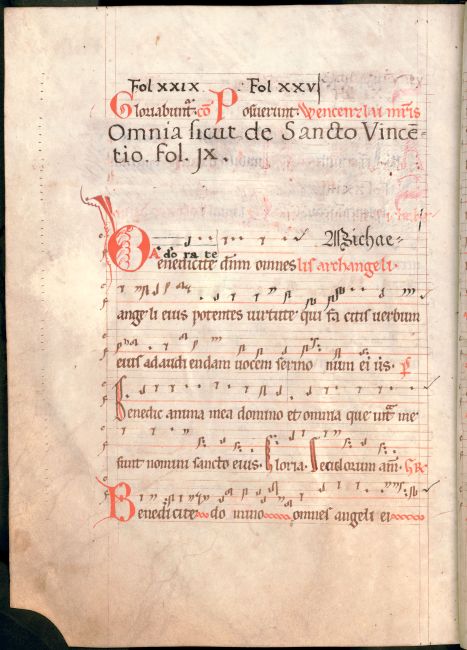 Fol XXIX. Fol XXV
Gloriabunt̃. cō Posuerunt. Wencenzlai m̃ris
Omnia sicut de Sancto Vincē-
tio. Fol. IX.
Michae-
Adorate
Benedicite dñm omnes lis archangeli.
angeli eius potentes uirtute qui fa citis uerbum
eius ad audi endam uocem sermo num ei us. P
Benedic anima mea domino et omnia que int̃ me
sunt nomini sancto eius. Gloria. Seculorum am̃. GR
Benedicite do mino omnes angeli ei